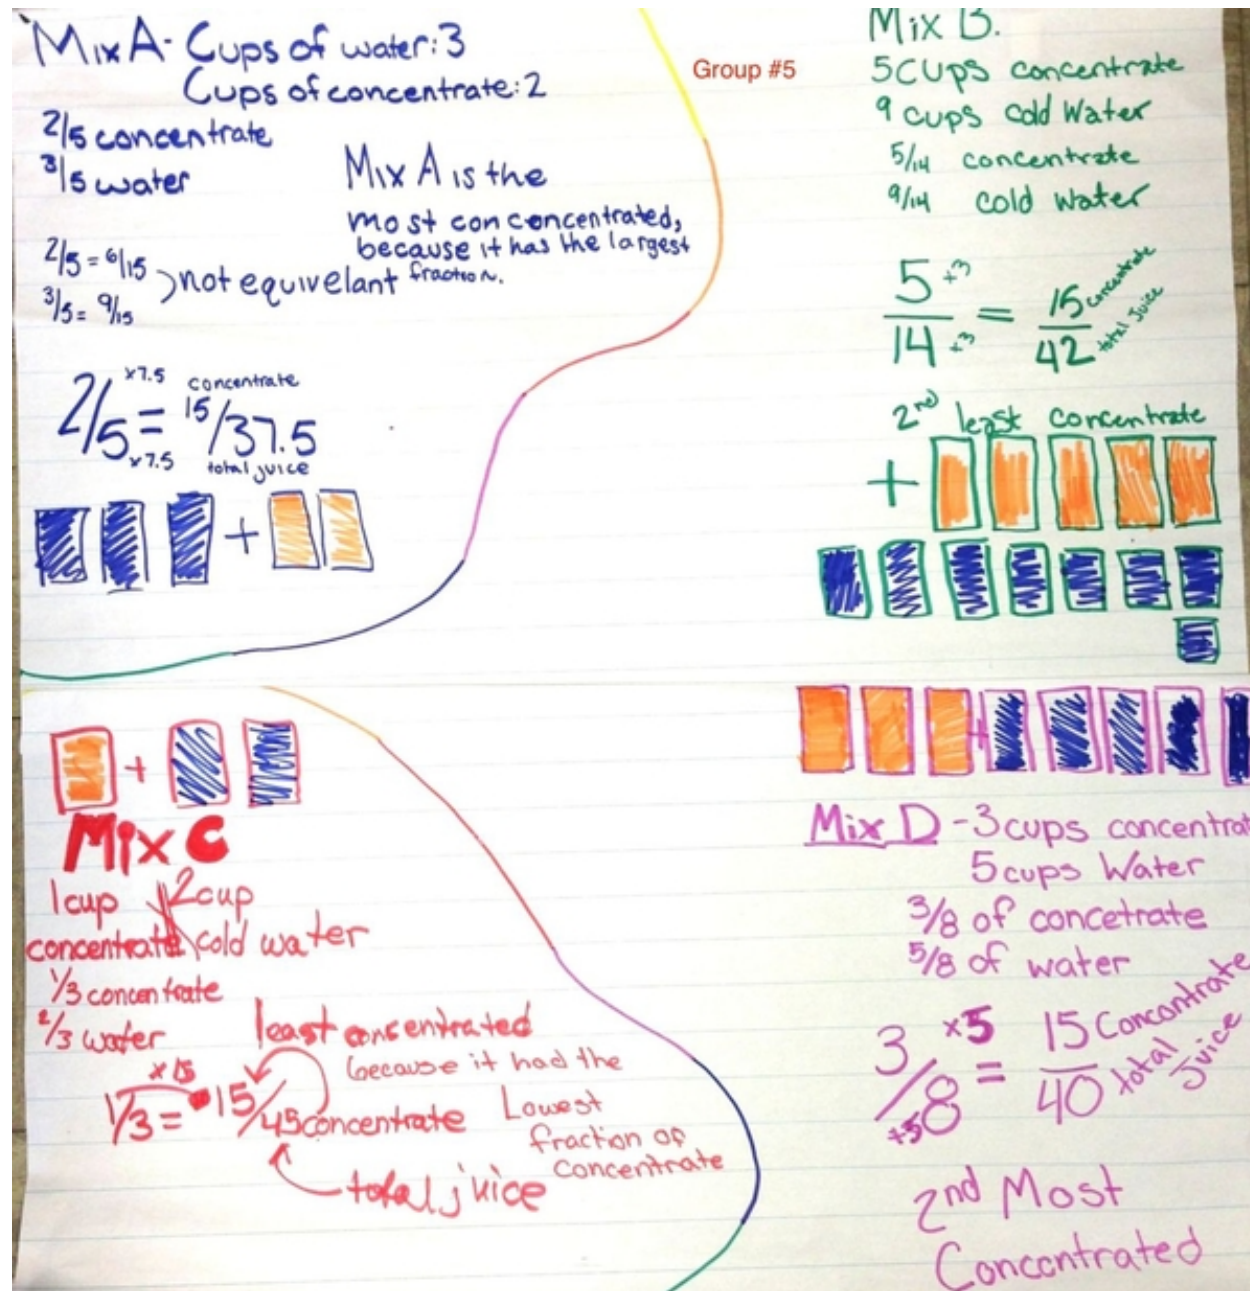 Mix A- Cups of water: 3
Cups of concentrate: 2
2/5 concentrate
3/5 water
Mix A is the
most con concentrated,
because it has the largest
fraction.
2/5 = 6/15
3/5 = 9/15
not equivelant
2/5 = 15/37.5
x7.5
x7.5
concentrate
total juice
+
Group #5
Mix B.
5 cups concentrate
9 cups cold water
5/14 concentrate
9/14 cold water
5/14 = 15/42
x3
x3
concentrate
total juice
2nd least concentrate
+
+
Mix C
1 cup
concentrate
2 cup
cold water
1/3 concentrate
2/3 water
least concentrated
because it had the
Lowest
fraction of
concentrate
x 15
1/3 = 15/45 concentrate
total juice
+
Mix D - 3 cups concentrat
5 cups Water
3/8 of concetrate
5/8 of water
3/8 = 15/40
x5
x5
Concontrate
total juice
2nd Most
Concontrated